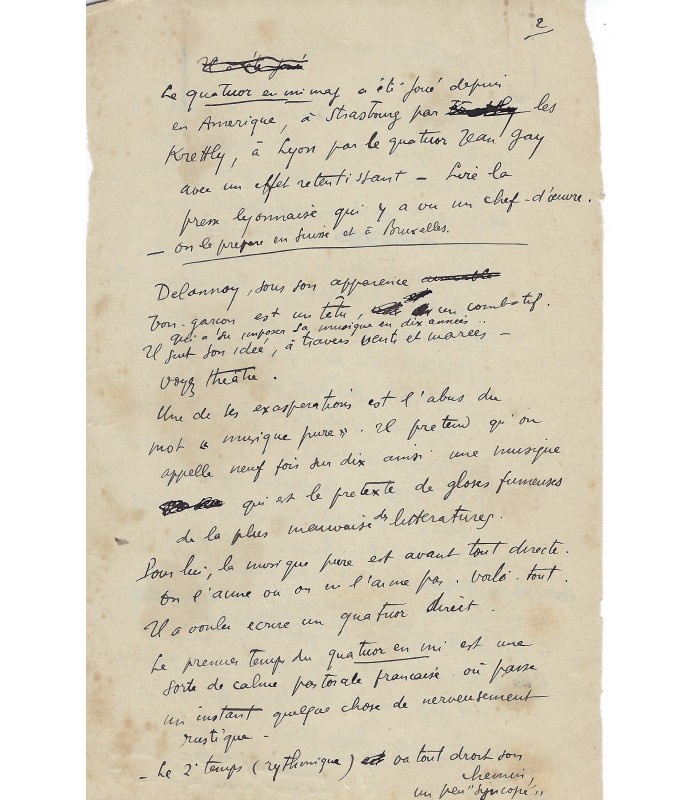 2
Il a été joué
Le quatuor en mi maj a été joué depuis
en Amerique, à Strasbourg par Krettly les
Krettly, à Lyon par le quatuor Jean Gay
avec un effet retentissant – Lire la
presse lyonnaise qui y a vu un chef-d'œuvre.
– on le prépare en Suisse et à Bruxelles.
Delannoy, sous son apparence
bon-garçon est un têtu, un combatif.
qui a su imposer sa musique en dix années
Il suit son idée, à travers vents et marées –
voyez théâtre.
Une de ses exasperations est l'abus du
mot "musique pure". Il pretend qu'on
appelle neuf fois sur dix ainsi une musique
qui est le pretexte de gloses fumeuses
de la plus mauvaise des litteratures.
Pour lui, la musique pure est avant tout directe.
On l'aime ou on ne l'aime pas. Voilà tout.
Il a voulu ecrire un quatuor direct.
Le premier temps du quatuor en mi est une
sorte de calme pastorale francaise où passe
un instant quelque chose de nerveusement
rustique –
– Le 2e temps (rythmique) est va tout droit son
chemin,
un peu "syncopé"